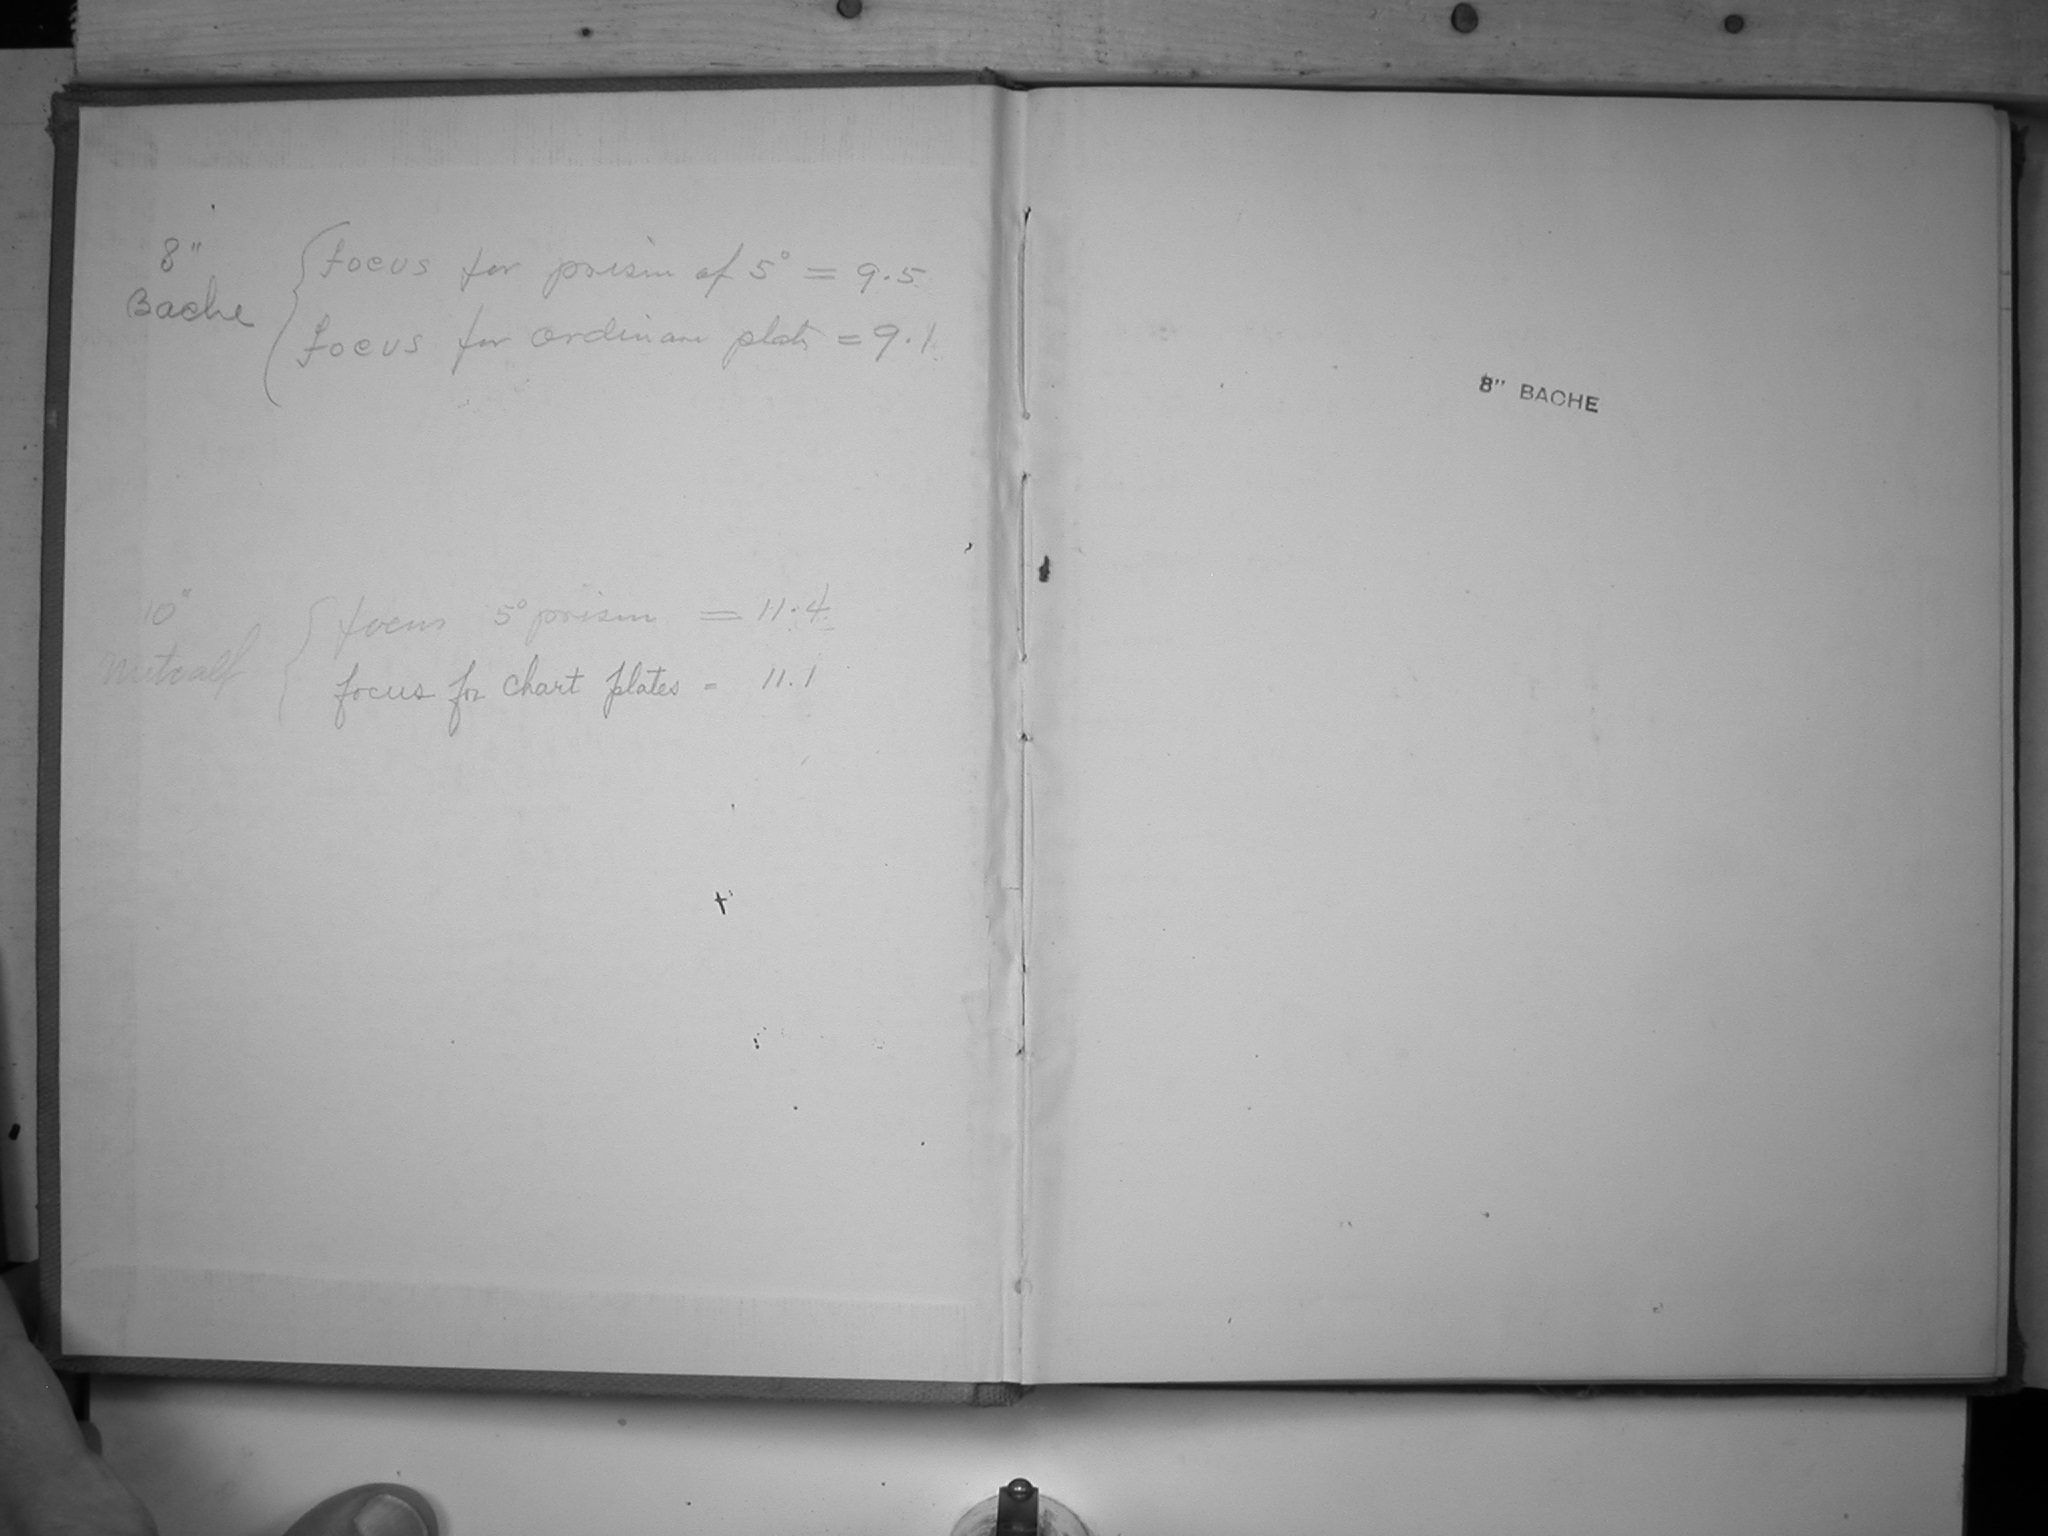 8" Bache { Focus for prism of 5° = 9.5
focus for ordinary plate = 9.1
10" Metcalf { focus 5° prism = 11.4
focus for chart plates = 11.1
8" BACHE